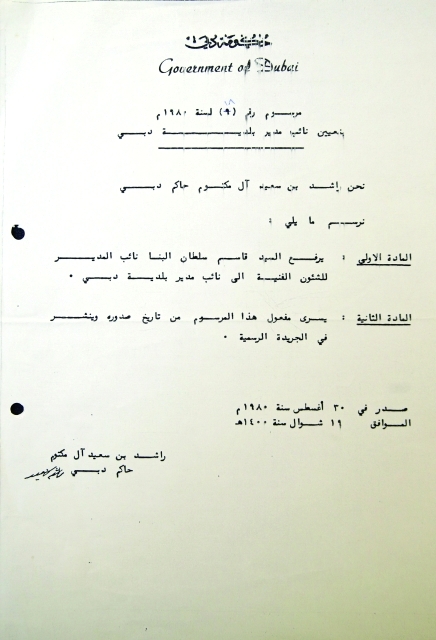 حكومة دبي
Government of Dubai
مرسوم رقم (٩) لسنة ١٩٨٠م
بتعيين نائب مدير بلدية دبي
نحن راشد بن سعيد آل مكتوم حاكم دبي
نرسم ما يلي :
المادة الاولى : يرفع السيد قاسم سلطان البنا نائب المدير
للشئون الفنية الى نائب مدير بلدية دبي ٠
المادة الثانية : يسرى مفعول هذا المرسوم من تاريخ صدوره وينشر
في الجريدة الرسمية ٠
صدر في ٣٠ أغسطس سنة ١٩٨٠م
الموافق ١٩ شوال سنة ١٤٠٠هـ
راشد بن سعيد آل مكتوم
حاكم دبي